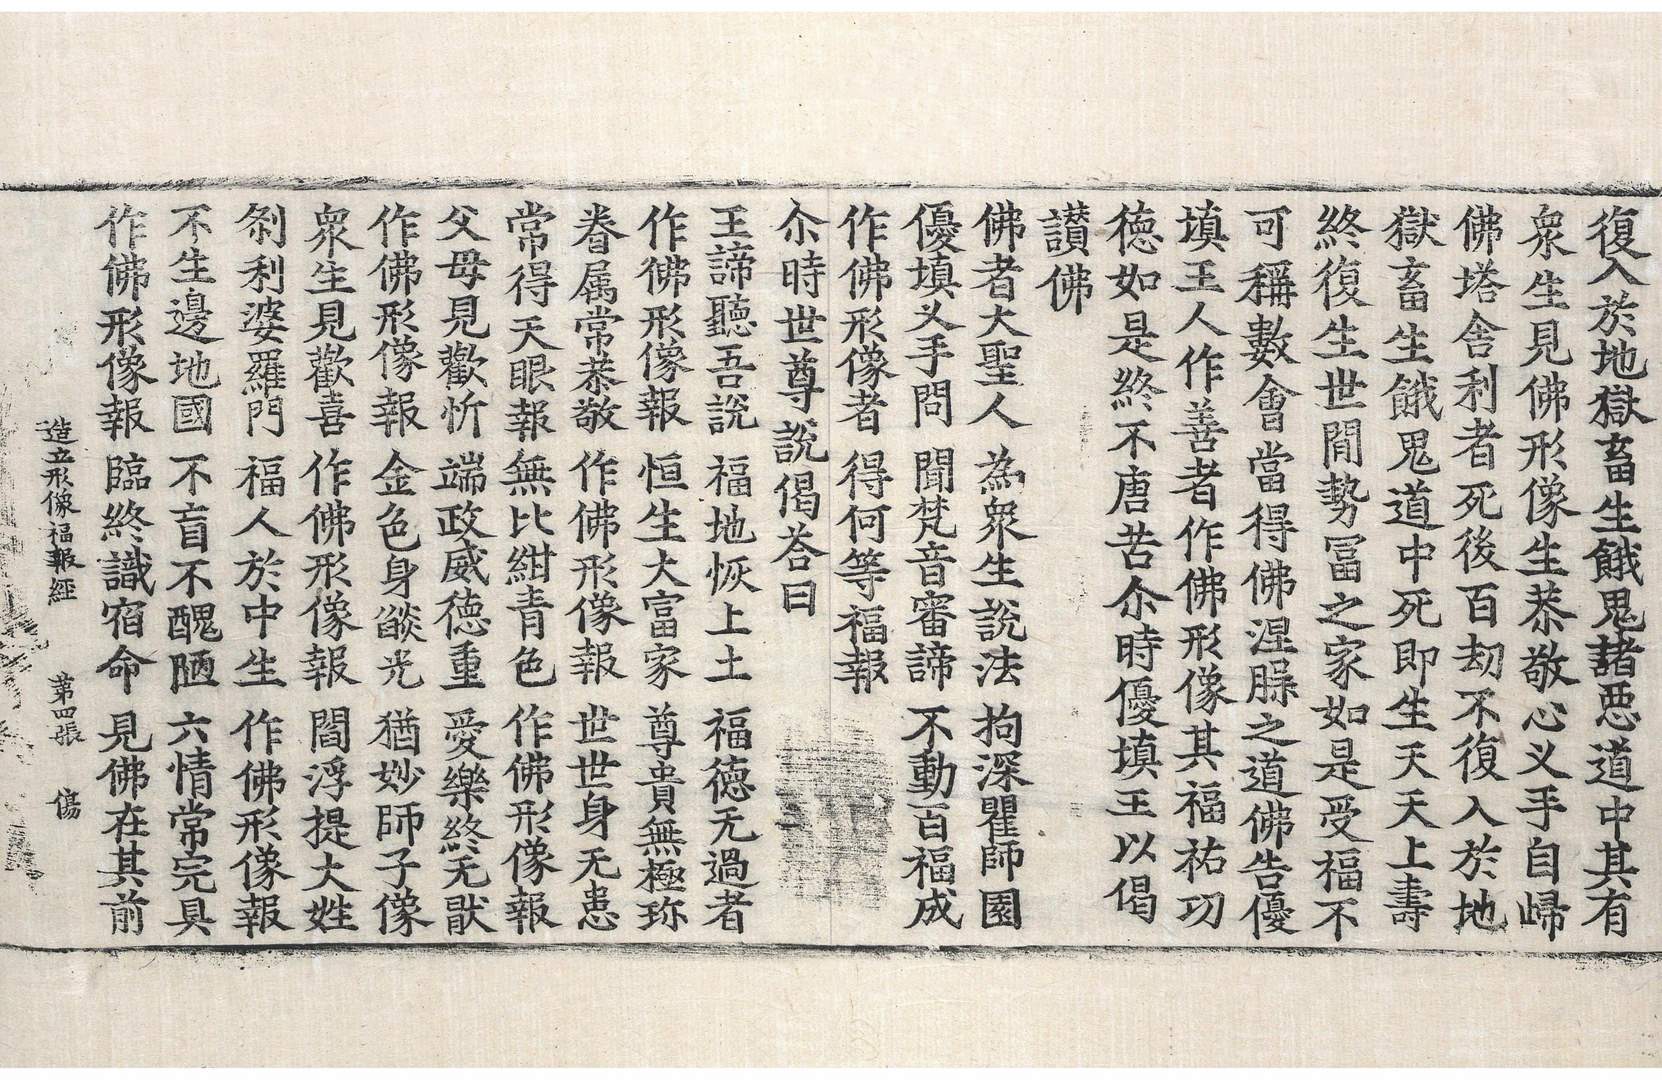 復入於地獄畜生餓鬼諸惡道中其有
衆生見佛形像生恭敬心叉手自歸
佛塔舍利者死後百劫不復入於地
獄畜生餓鬼道中死即生天天上壽
終復生世間勢冨之家如是受福不
可稱數會當得佛涅槃之道佛告優
填王人作善者作佛形像其福祐功
德如是終不唐苦尒時優填王以偈
讃佛
佛者大聖人 為衆生說法 拘深瞿師園
優填叉手問 聞梵音審諦 不動百福成
作佛形像者 得何等福報
尒時世尊說偈荅曰
王諦聽吾說 福地恢上土 福德无過者
作佛形像報 恒生大富家 尊貴無極珎
眷属常恭敬 作佛形像報 世世身无患
常得天眼報 無比紺青色 作佛形像報
父母見歡忻 端政威德重 愛樂終无猒
作佛形像報 金色身燄光 猶妙師子像
衆生見歡喜 作佛形像報 閻浮提大姓
刹利婆羅門 福人於中生 作佛形像報
不生邊地國 不盲不醜陋 六情常完具
作佛形像報 臨終識宿命 見佛在其前
造立形像福報經 第四張 傷